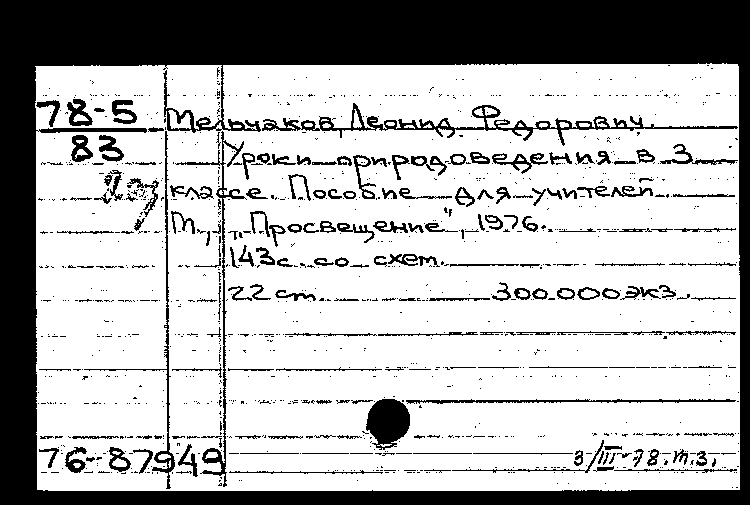 78-5 Мельчаков, Леонид Федорович.
83 Уроки природоведения в 3
классе. Пособие для учителей
М., „Просвещение", 1976.
143с. со схем.
22 ст. 300.000 экз.
76-87949 3/III-78.т.з.